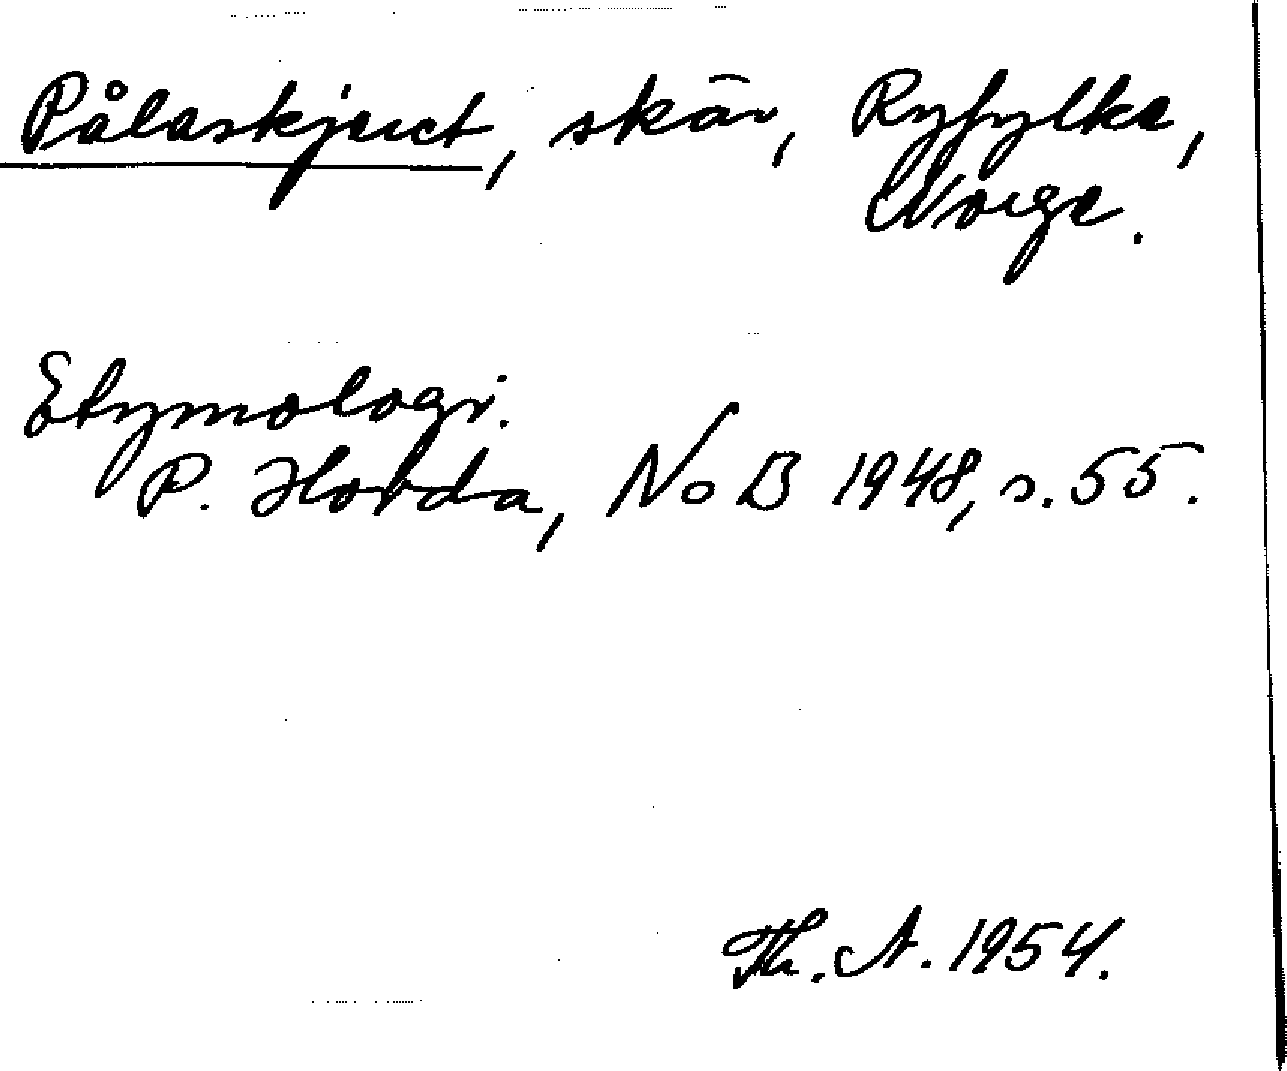 Pålaskjeret, skär, Ryfylke,
Norge.
Etymologi.
P. Hovda, NoB 1948, s. 55.
Th. A. 1954.